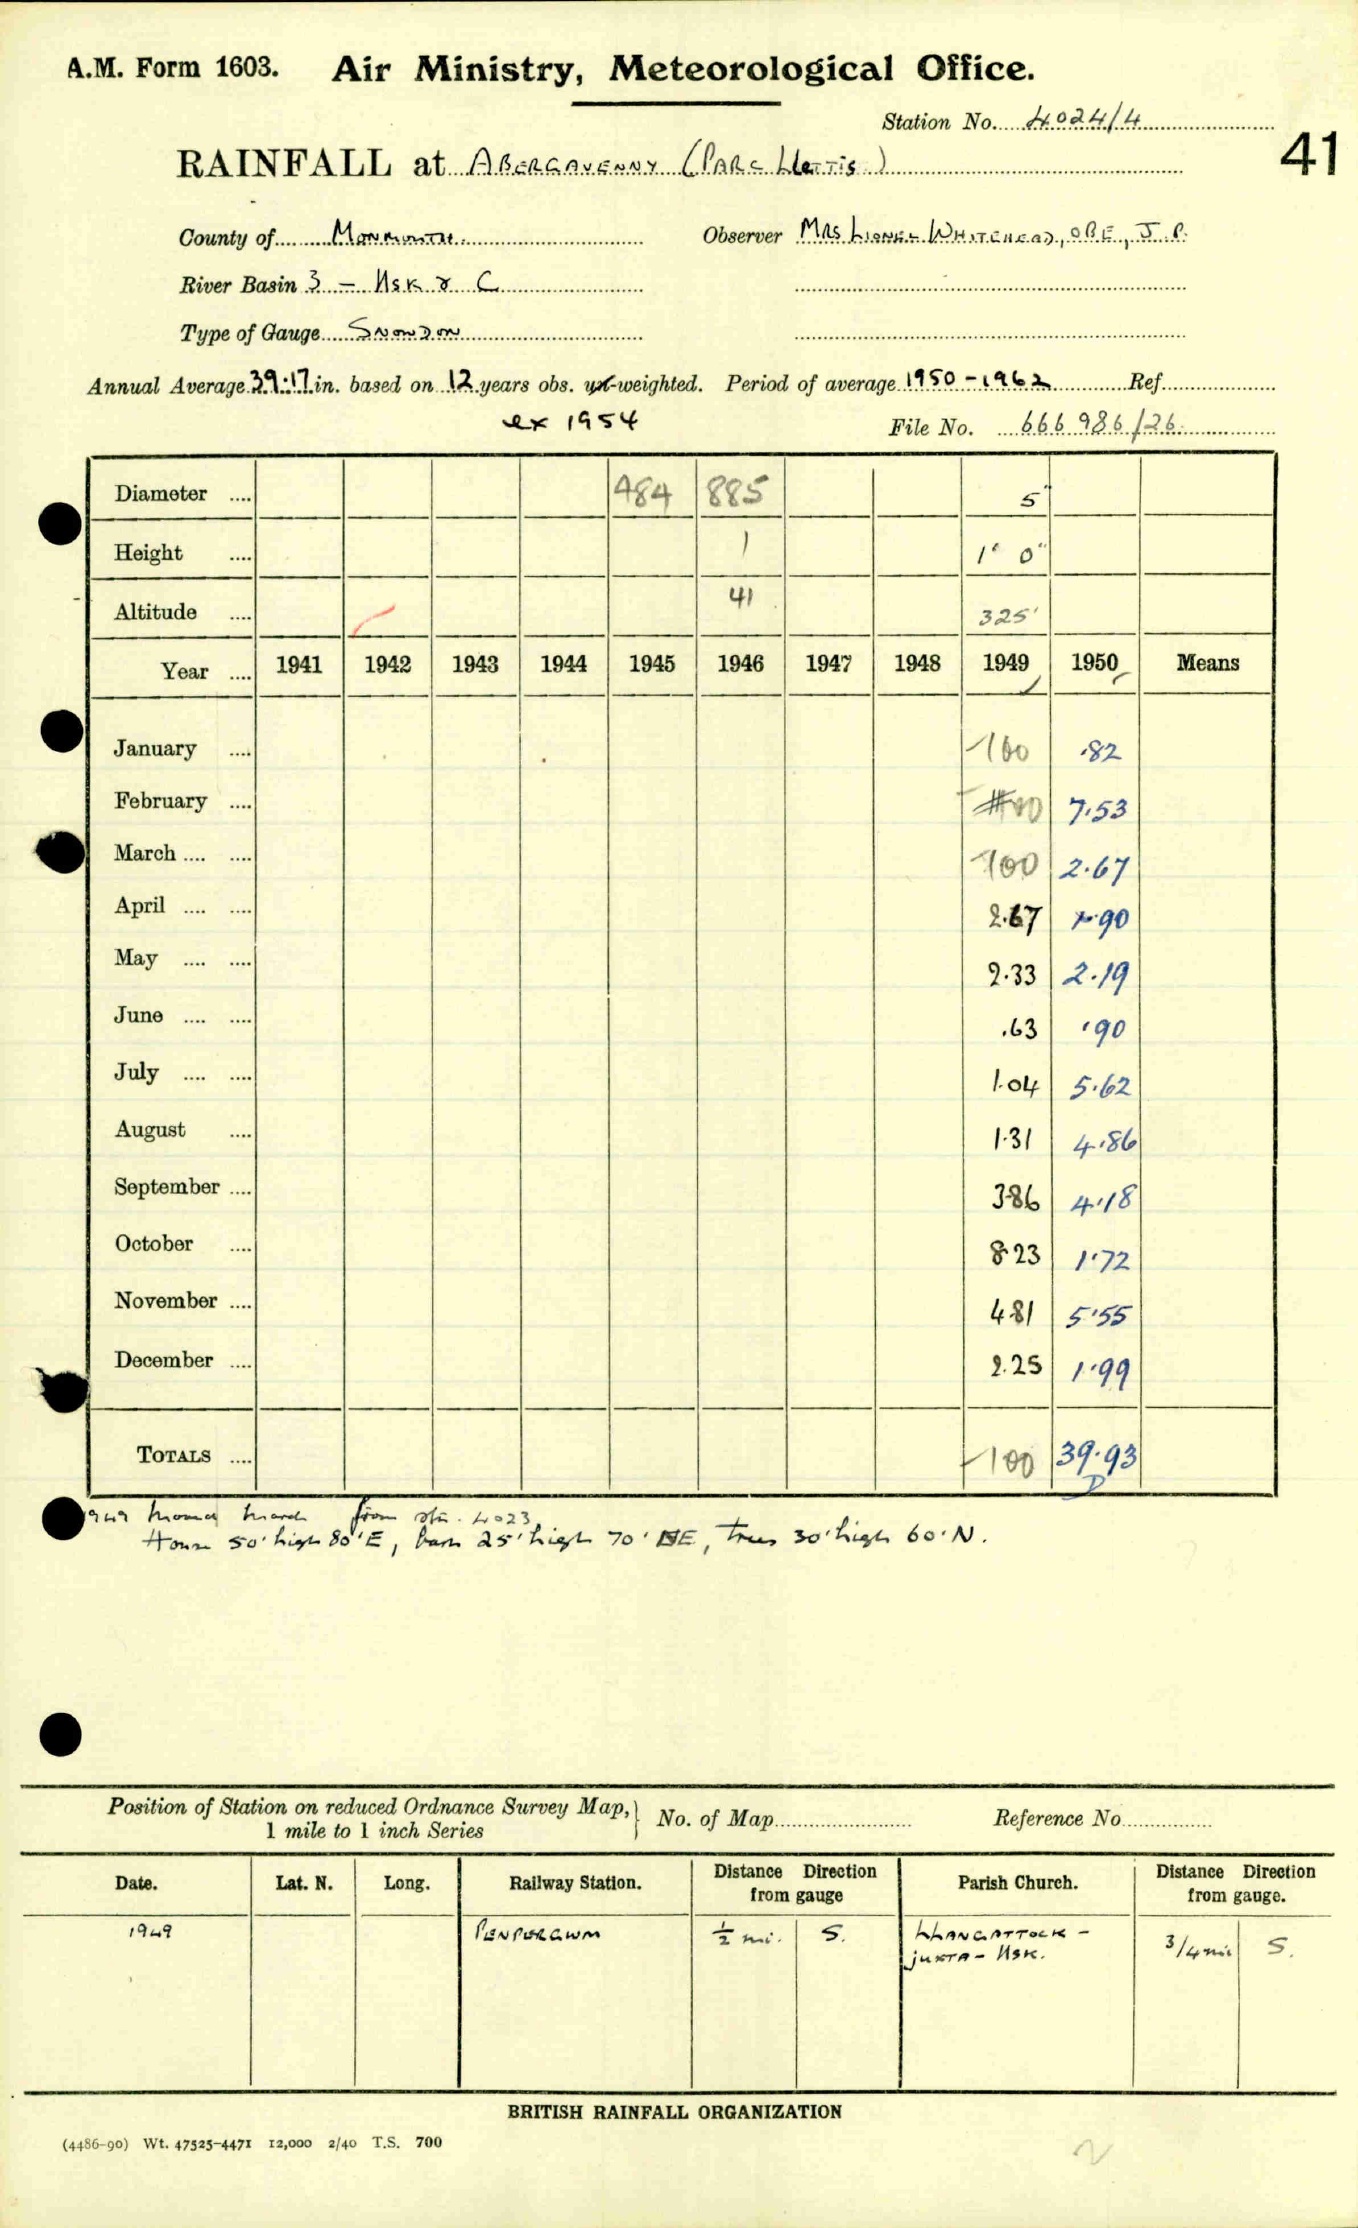 A.M. Form 1603. Air Ministry, Meteorological Office.
Station No. 4024/4
41
RAINFALL at ABERGAVENNY (PARC LLETTIS)
County of MONMOUTH. Observer MRS LIONEL WHITEHEAD, OBE, J.P.
River Basin 3 – USK & C
Type of Gauge SNOWDON
Annual Average 39.17 in. based on 12 years obs. un-weighted. Period of average 1950-1962 Ref.
ex 1954 File No. 666 986/26
Diameter .... 484 885 5"
Height .... 1 1' 0"
Altitude .... 41 325'
Year .... 1941 1942 1943 1944 1945 1946 1947 1948 1949 1950 Means
January .... -100 .82
February .... 7.53
March .... .... -100 2.67
April .... .... 2.67 1.90
May .... .... 2.33 2.19
June .... .... .63 .90
July .... .... 1.04 5.62
August .... 1.31 4.86
September .... 3.86 4.18
October .... 8.23 1.72
November .... 4.81 5.55
December .... 2.25 1.99
TOTALS .... -100 39.93
D
1949 moved March from stn. 4023
House 50' high 80' E, barn 25' high 70' NE, trees 30' high 60' N.
Position of Station on reduced Ordnance Survey Map, 1 mile to 1 inch Series } No. of Map Reference No.
Date. Lat. N. Long. Railway Station. Distance Direction from gauge Parish Church. Distance Direction from gauge.
1949 PENPERGWM ½ mi. S. LLANGATTOCK - JUXTA - USK. 3/4 mi S.
BRITISH RAINFALL ORGANIZATION
(4486-90) Wt. 47525-4471 12,000 2/40 T.S. 700
2